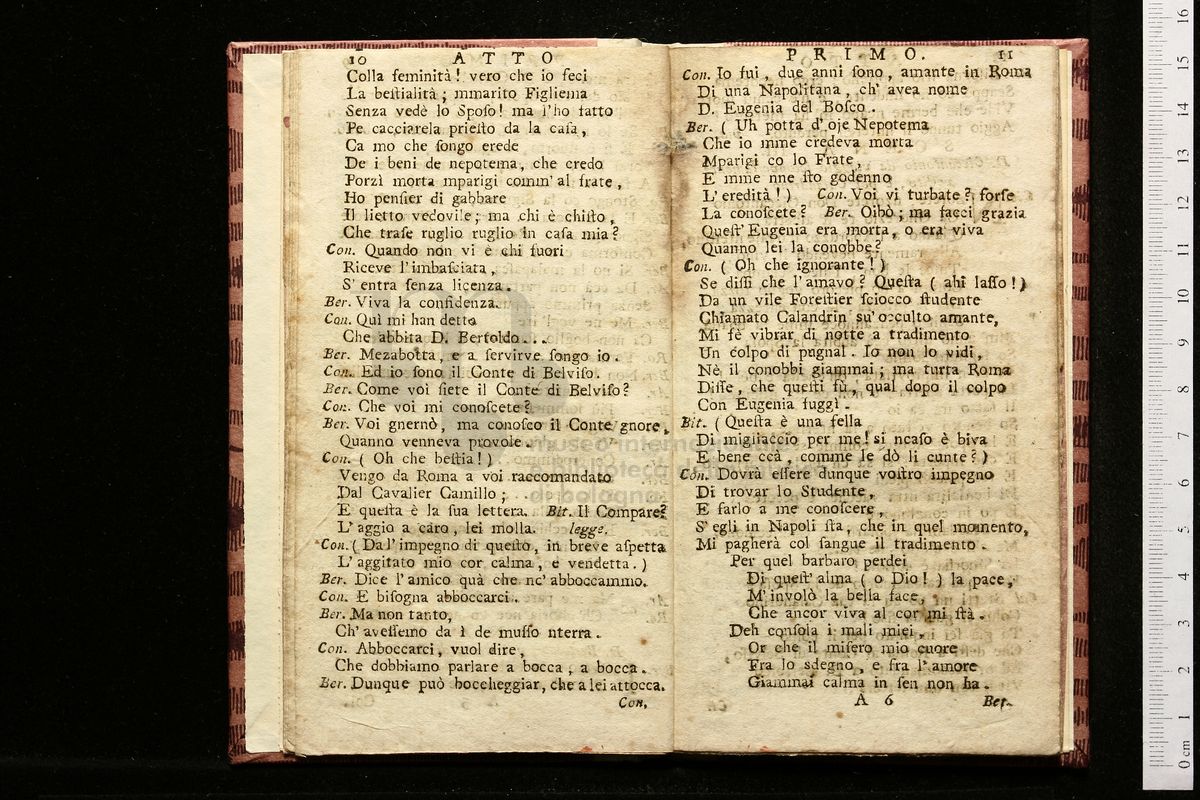 10 ATTO
Colla feminità! vero che io feci
La bestialità; mmarito Figliema
Senza vedè lo Sposo! ma l'ho fatto
Pe cacciarela priesto da la casa,
Ca mo che songo erede
De i beni de nepotema, che credo
Porzì morta mparigi comm' al frate,
Ho pensier di gabbare
Il lietto vedovile; ma chi è chisto,
Che trase ruglio ruglio in casa mia?
Con. Quando non vi è chi fuori
Riceve l'imbasciata,
S' entra senza licenza.
Ber. Viva la confidenza.
Con. Quì mi han detto
Che abbita D. Bertoldo...
Ber. Mezabotta, e a servirve songo io.
Con. Ed io sono il Conte di Belviso.
Ber. Come voi siete il Conte di Belviso?
Con. Che voi mi conoscete?
Ber. Voi gnernò, ma conosco il Conte gnore,
Quanno venneva provole.
Con. ( Oh che bestia! )
Vengo da Roma a voi raccomandato
Dal Cavalier Camillo;
E questa è la sua lettera. Bit. Il Compare?
L' aggio a caro, lei molla. legge.
Con. ( Dal' impegno di questo, in breve aspetta
L' aggitato mio cor calma, e vendetta. )
Ber. Dice l'amico quà che nc' abboccammo.
Con. E bisogna abboccarci.
Ber. Ma non tanto,
Ch' avessemo da ì de musso nterra.
Con. Abboccarci, vuol dire,
Che dobbiamo parlare a bocca, a bocca.
Ber. Dunque può boccheggiar, che a lei attocca.
Con,
PRIMO. 11
Con. Io fui, due anni sono, amante in Roma
Di una Napolitana, ch' avea nome
D. Eugenia del Bosco.
Ber. ( Uh potta d' oje Nepotema
Che io mme credeva morta
Mparigi co lo Frate,
E mme nne sto godenno
L' eredità! ) Con. Voi vi turbate? forse
La conoscete? Ber. Oibò; ma facci grazia
Quest' Eugenia era morta, o era viva
Quanno lei la conobbe?
Con. ( Oh che ignorante! )
Se dissi che l'amavo? Questa ( ahi lasso! )
Da un vile Forestier sciocco studente
Chiamato Calandrin su' occulto amante,
Mi fè vibrar di notte a tradimento
Un colpo di pugnal. Io non lo vidi,
Nè il conobbi giammai; ma tutta Roma
Disse, che questi fù, qual dopo il colpo
Con Eugenia fuggì.
Bit. ( Questa è una fella
Di migliaccio per me! si ncaso è biva
E bene ccà, comme le dò li cunte? )
Con. Dovrà essere dunque vostro impegno
Di trovar lo Studente,
E farlo a me conoscere,
S' egli in Napoli sta, che in quel momento,
Mi pagherà col sangue il tradimento.
Per quel barbaro perdei
Di quest' alma ( o Dio! ) la pace,
M' involò la bella face,
Che ancor viva al cor mi stà.
Deh consola i mali miei,
Or che il misero mio cuore
Fra lo sdegno, e fra l'amore
Giammai calma in sen non ha.
A 6 Ber.